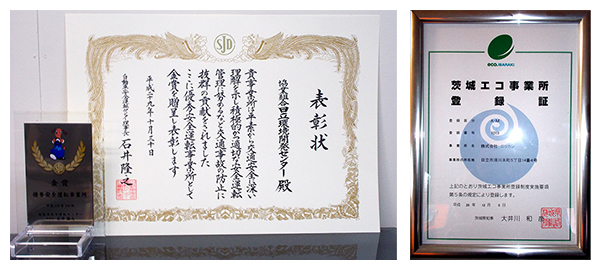 SJD
表彰状
協業組合日立環境開発センター 殿
貴事業所は平素から交通安全に深い
理解を示し積極的かつ適切な安全運転
管理に努めるなど交通事故の防止に
抜群の貢献をされました
ここに優秀安全運転事業所として
金賞を贈呈し表彰します
平成二十九年十月二十日
自動車安全運転センター理事長 石井隆之
金賞
優秀安全運転事業所
eco.IBARAKI
茨城エコ事業所
登録証
登録番号
上記のとおり茨城エコ事業所登録制度実施要項
第5条の規定により登録します。
茨城県知事 大井川 和彦